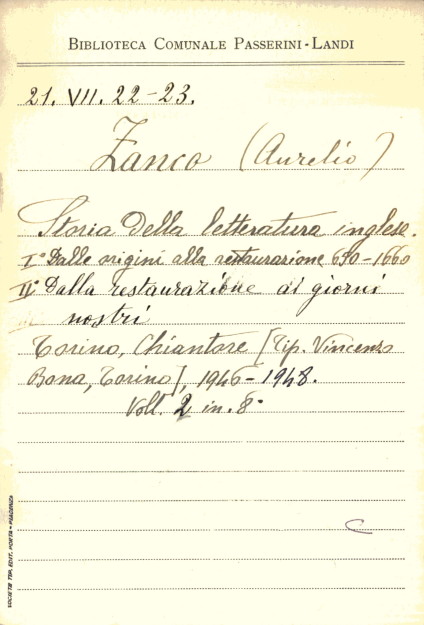 BIBLIOTECA COMUNALE PASSERINI-LANDI
21. VII. 22-23.
Zanco (Aurelio)
Storia della letteratura inglese.
I° Dalle origini alla restaurazione 650-1660
II° Dalla restaurazione ai giorni
nostri
Torino, Chiantore [Tip. Vincenzo
Bona, Torino], 1946-1948.
Voll. 2 in. 8°
C
SOCIETÀ TIP. EDIT. PORTA - PIACENZA